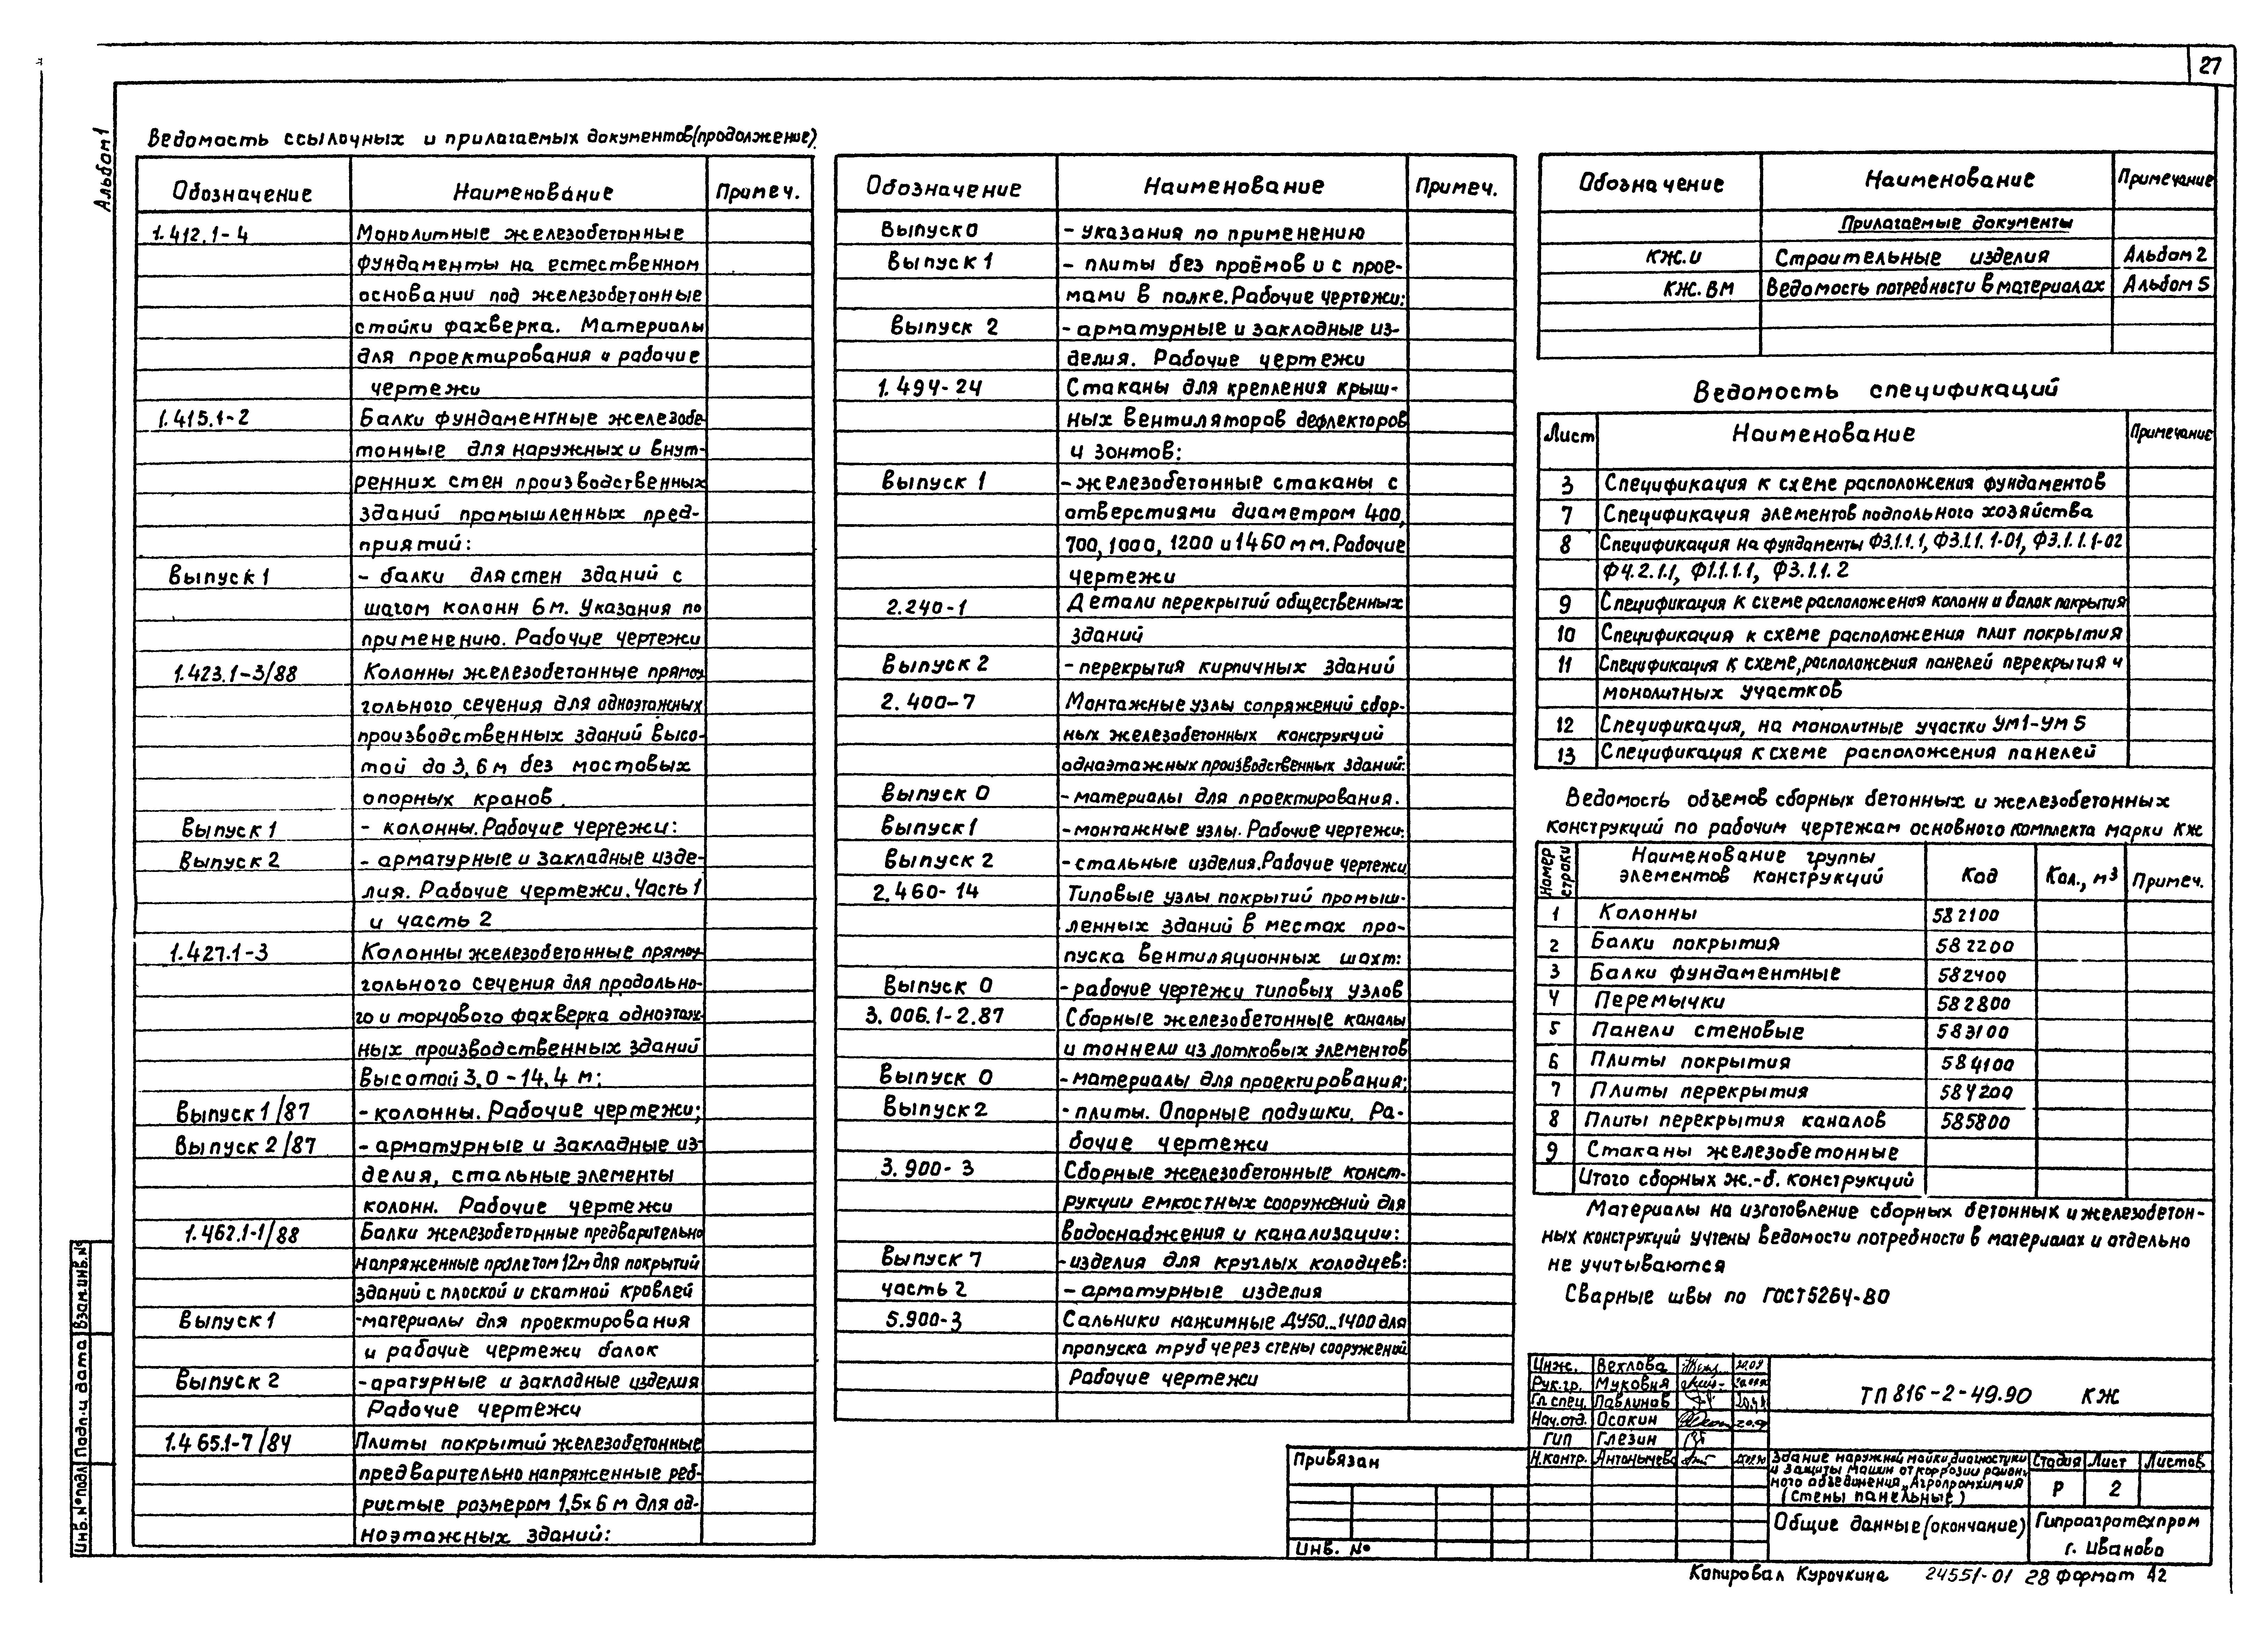 27
Альбом 1
Ведомость ссылочных и прилагаемых документов (продолжение)
Обозначение Наименование Примеч.
1.412.1-4 Монолитные железобетонные
фундаменты на естественном
основании под железобетонные
стойки фахверка. Материалы
для проектирования и рабочие
чертежи
1.415.1-2 Балки фундаментные железобе-
тонные для наружных и внут-
ренних стен производственных
зданий промышленных пред-
приятий:
Выпуск 1 - балки для стен зданий с
шагом колонн 6м. Указания по
применению. Рабочие чертежи
1.423.1-3/88 Колонны железобетонные прямоу-
гольного сечения для одноэтажных
производственных зданий высо-
той до 3,6 м без мостовых
опорных кранов.
Выпуск 1 - колонны. Рабочие чертежи:
Выпуск 2 - арматурные и закладные изде-
лия. Рабочие чертежи. Часть 1
и часть 2
1.427.1-3 Колонны железобетонные прямоу-
гольного сечения для продольно-
го и торцового фахверка одноэтаж-
ных производственных зданий
высотой 3,0-14,4 м:
Выпуск 1/87 - колонны. Рабочие чертежи;
Выпуск 2/87 - арматурные и закладные из-
делия, стальные элементы
колонн. Рабочие чертежи
1.462.1-1/88 Балки железобетонные предварительно
напряженные пролетом 12м для покрытий
зданий с плоской и скатной кровлей
Выпуск 1 -материалы для проектирования
и рабочие чертежи балок
Выпуск 2 -аратурные и закладные изделия
Рабочие чертежи
1.465.1-7/84 Плиты покрытий железобетонные
предварительно напряженные реб-
ристые размером 1,5х6 м для од-
ноэтажных зданий:
Обозначение Наименование Примеч.
Выпуск 0 - указания по применению
Выпуск 1 - плиты без проёмов и с прое-
мами в полке. Рабочие чертежи:
Выпуск 2 - арматурные и закладные из-
делия. Рабочие чертежи
1.494-24 Стаканы для крепления крыш-
ных вентиляторов дефлекторов
и зонтов:
Выпуск 1 - железобетонные стаканы с
отверстиями диаметром 400,
700, 1000, 1200 и 1450 мм. Рабочие
чертежи
2.240-1 Детали перекрытий общественных
зданий
Выпуск 2 - перекрытия кирпичных зданий
2.400-7 Монтажные узлы сопряжений сбор-
ных железобетонных конструкций
одноэтажных производственных зданий:
Выпуск 0 - материалы для проектирования.
Выпуск 1 - монтажные узлы. Рабочие чертежи:
Выпуск 2 - стальные изделия. Рабочие чертежи
2.460-14 Типовые узлы покрытий промыш-
ленных зданий в местах про-
пуска вентиляционных шахт:
Выпуск 0 - рабочие чертежи типовых узлов
3.006.1-2.87 Сборные железобетонные каналы
и тоннели из лотковых элементов
Выпуск 0 - материалы для проектирования;
Выпуск 2 - плиты. Опорные подушки. Ра-
бочие чертежи
3.900-3 Сборные железобетонные конст-
рукции емкостных сооружений для
водоснабжения и канализации:
Выпуск 7 - изделия для круглых колодцев:
часть 2 - арматурные изделия
5.900-3 Сальники нажимные ДУ50...1400 для
пропуска труб через стены сооружений
Рабочие чертежи
Обозначение Наименование Примечание
Прилагаемые документы
КЖ.И Строительные изделия Альбом 2
КЖ.ВМ Ведомость потребности в материалах Альбом 5
Ведомость спецификаций
Лист Наименование Примечание
3 Спецификация к схеме расположения фундаментов
7 Спецификация элементов подпольного хозяйства
8 Спецификация на фундаменты Ф3.1.1.1, Ф3.1.1.1-01, Ф3.1.1.1-02
Ф4.2.1.1, Ф1.1.1.1, Ф3.1.1.2
9 Спецификация к схеме расположения колонн и балок покрытия
10 Спецификация к схеме расположения плит покрытия
11 Спецификация к схеме, расположения панелей перекрытия и
монолитных участков
12 Спецификация, на монолитные участки УМ1-УМ5
13 Спецификация к схеме расположения панелей
Ведомость объемов сборных бетонных и железобетонных
конструкций по рабочим чертежам основного комплекта марки КЖ
Номер строки Наименование группы элементов конструкций Код Кол., м³ Примеч.
1 Колонны 582100
2 Балки покрытия 582200
3 Балки фундаментные 582400
4 Перемычки 582800
5 Панели стеновые 583100
6 Плиты покрытия 584100
7 Плиты перекрытия 584200
8 Плиты перекрытия каналов 585800
9 Стаканы железобетонные
Итого сборных ж.-б. конструкций
Материалы на изготовление сборных бетонных и железобетон-
ных конструкций учтены ведомости потребности в материалах и отдельно
не учитываются
Сварные швы по ГОСТ 5264-80
Инж. Вехлова
Рук.гр. Муковня
Гл.спец. Павлинов
Нач.отд. Осокин
ГИП Глезин
Н.контр. Антонычева
ТП 816-2-49.90 КЖ
Здание наружной мойки, диагностики
и защиты машин от коррозии район-
ного объединения „Агропромхимия
(Стены панельные)
Стадия Лист Листов
Р 2
Общие данные (окончание)
Гипроагротехпром
г. Иваново
Привязан
Инв. №
Взам.инв.№
Подп. и дата
Инв.№подл
Копировал Курочкина 24551-01 28 Формат А2